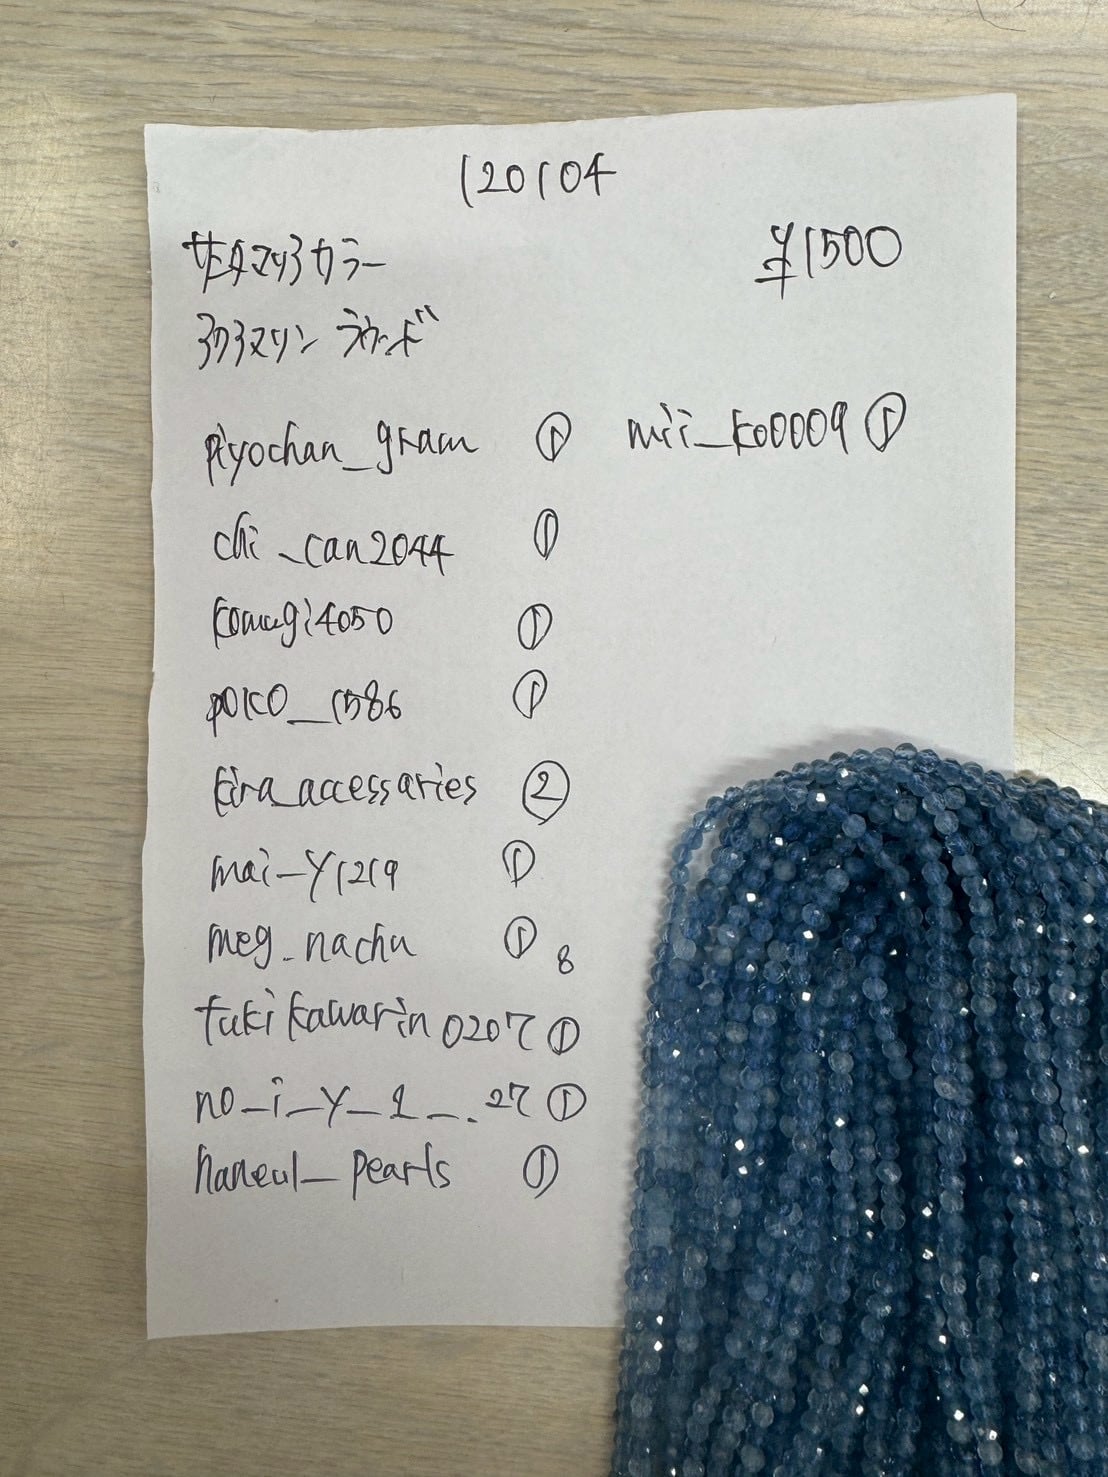 120104
サンタマリアカラー
¥1500
アクアマリン ラウンド
piyochan_gram ①
mii_ko0009 ①
chi_can2044 ①
komugi4050 ①
poko_1586 ①
kira_accessaries ②
mai_y1219 ①
meg_nachu ① 8
tukikawarin0207 ①
no_i_y_1__.27 ①
haneul_pearls ①